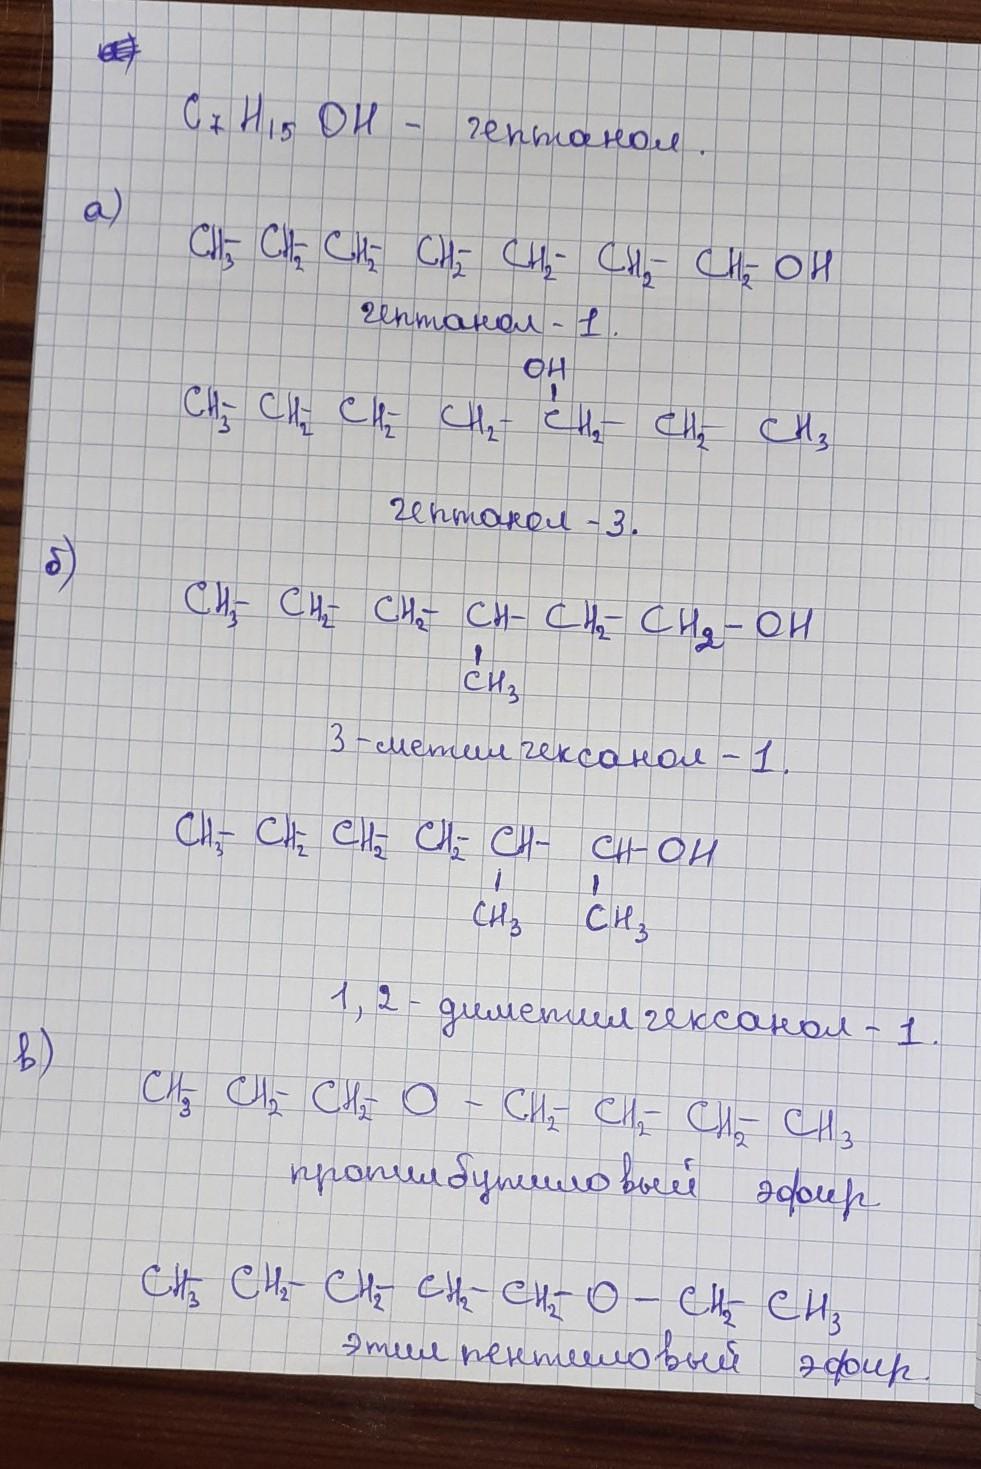 C₇H₁₅OH - гептанол.
а)
CH₃- CH₂- CH₂- CH₂- CH₂- CH₂- CH₂- OH
гептанол - 1.
OH
CH₃- CH₂- CH₂- CH₂- CH₂- CH₂- CH₃
гептанол - 3.
б)
CH₃- CH₂- CH₂- CH- CH₂- CH₂- OH
CH₃
3-метилгексанол - 1.
CH₃- CH₂- CH₂- CH₂- CH- CH- OH
CH₃ CH₃
1, 2 - диметилгексанол - 1.
в)
CH₃- CH₂- CH₂- O - CH₂- CH₂- CH₂- CH₃
пропилбутиловый эфир
CH₃- CH₂- CH₂- CH₂- CH₂- O - CH₂- CH₃
этилпентиловый эфир.